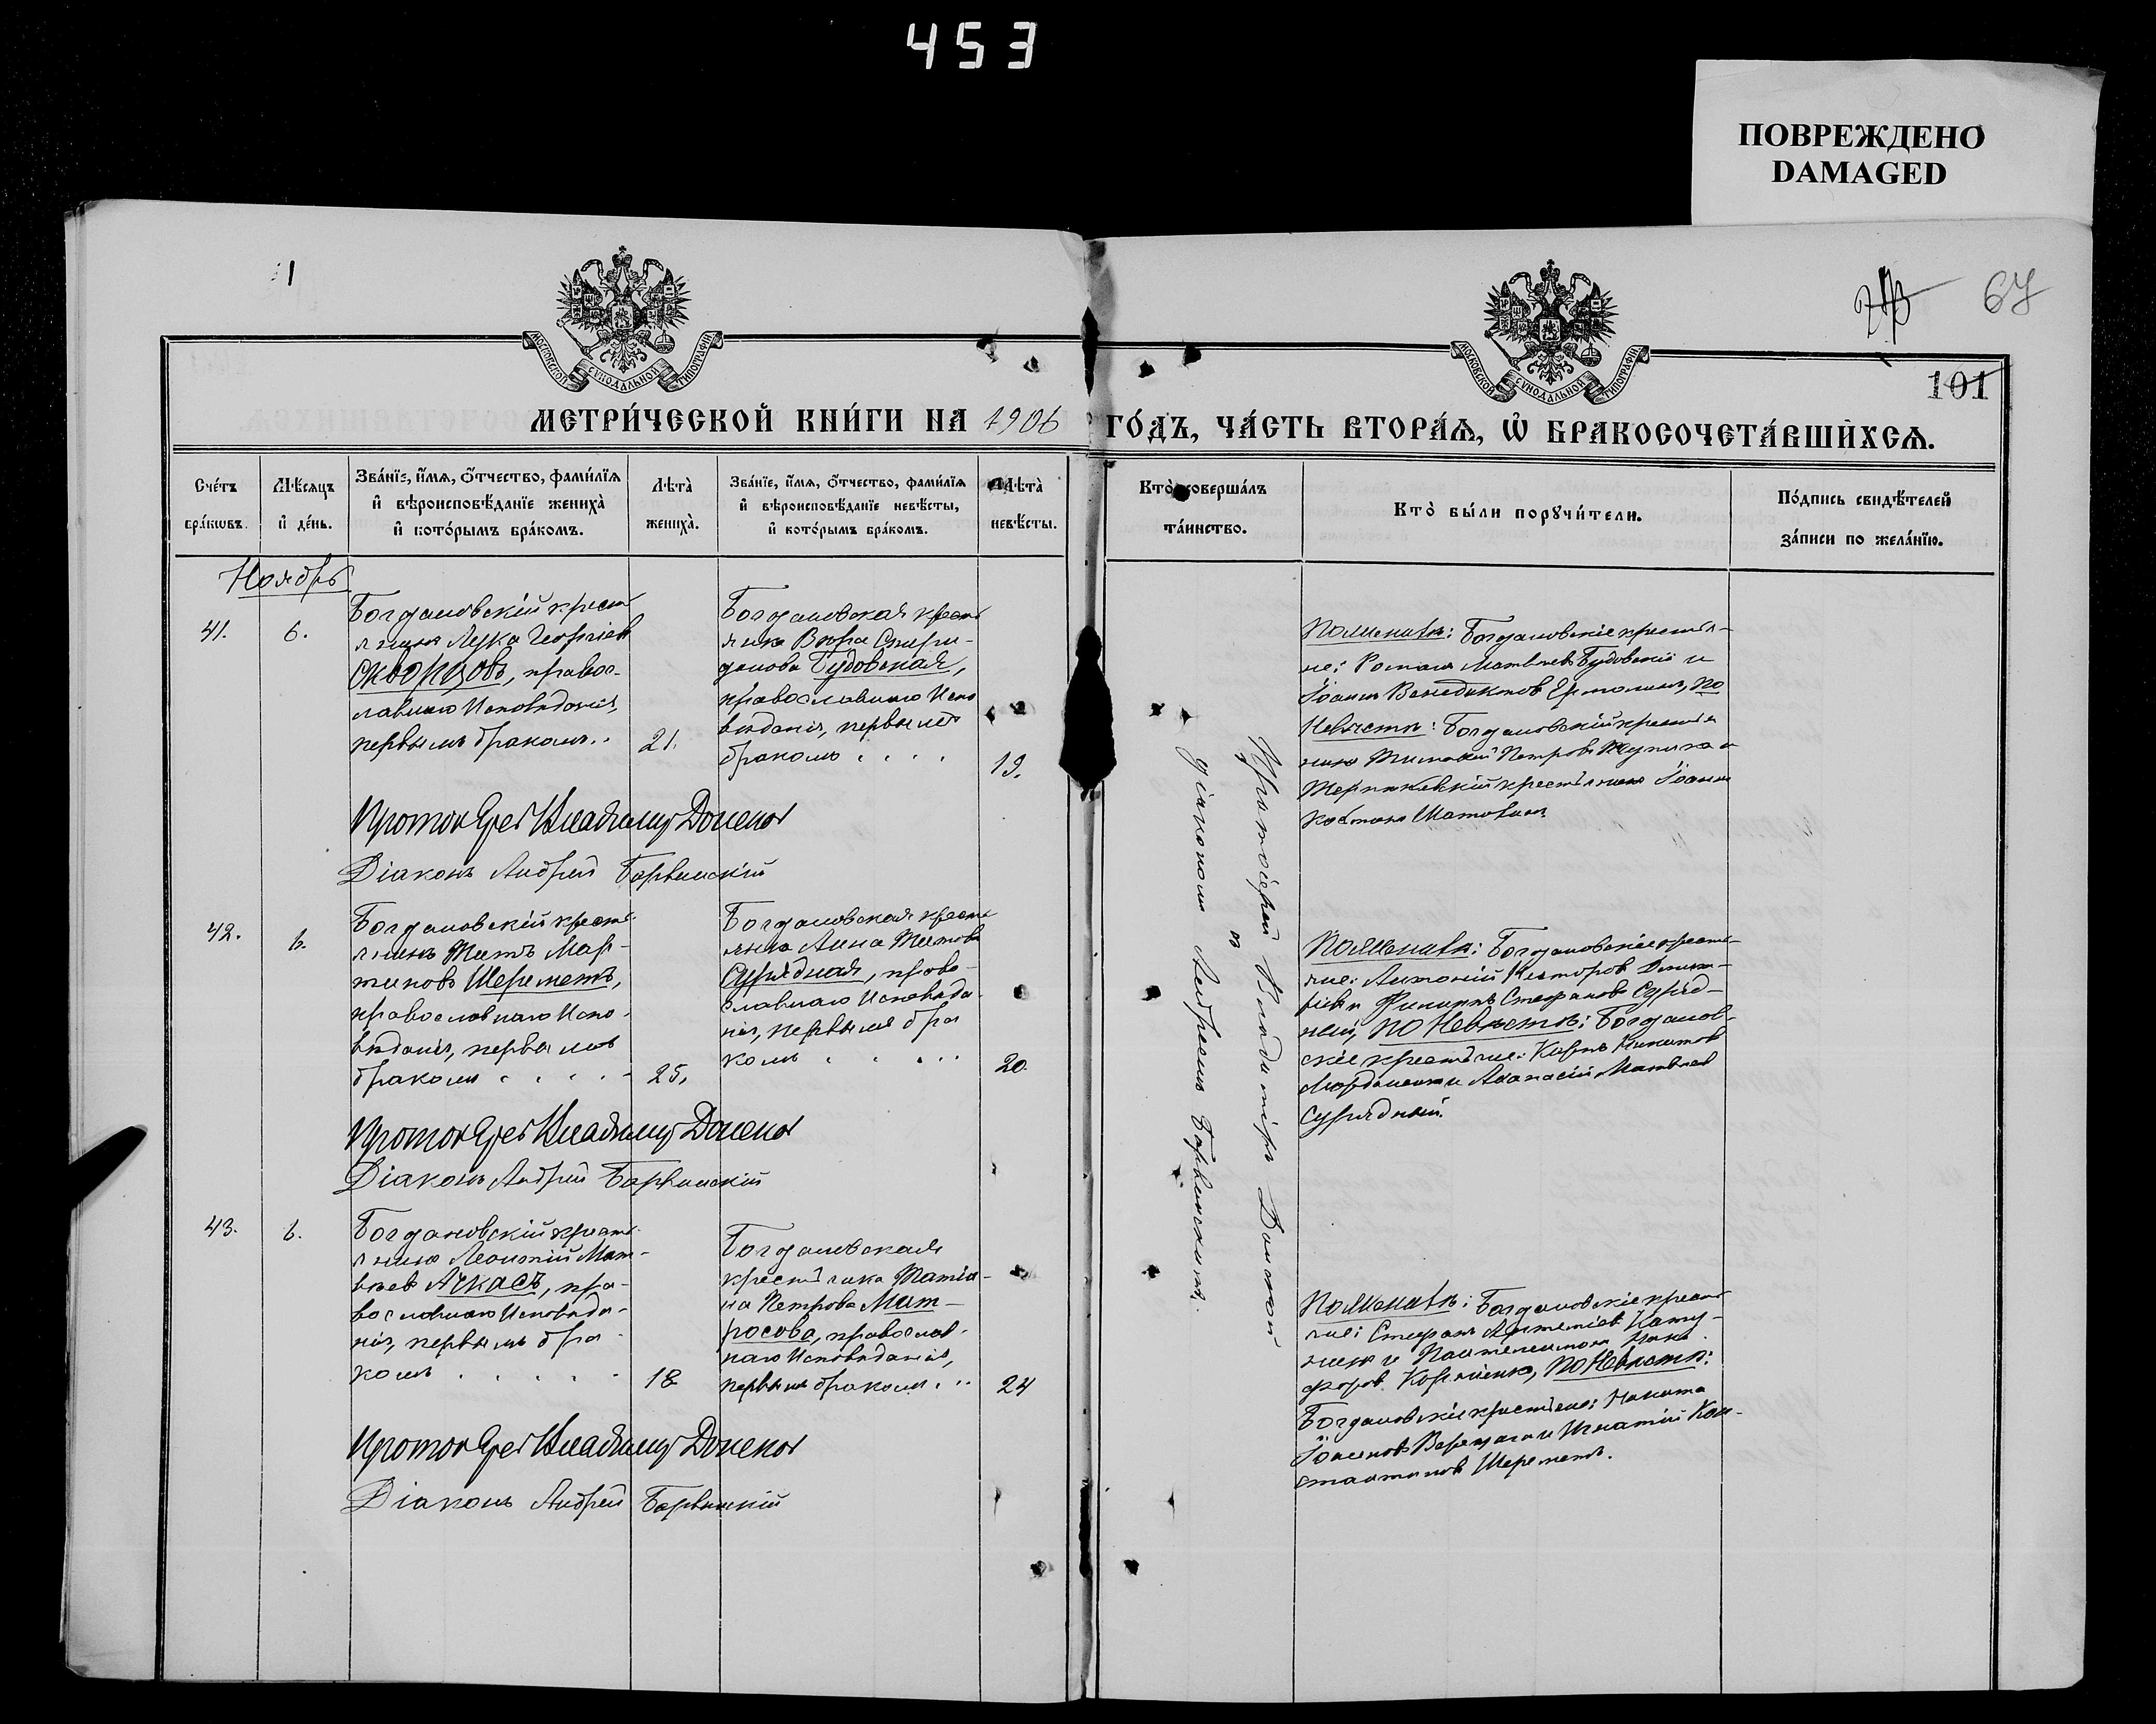 453
ПОВРЕЖДЕНО
DAMAGED
67
101
МОСКОВСКОЙ СѴНОДАЛЬНОЙ ТИПОГРАФІИ
МОСКОВСКОЙ СѴНОДАЛЬНОЙ ТИПОГРАФІИ
МЕТРИ́ЧЕСКОЙ КНИ́ГИ НА 1906 ГО́ДЪ, ЧА́СТЬ ВТОРА́Ѧ, Ѡ БРАКОСОЧЕТА́ВШИХСѦ.
Сче́тъ бра́ковъ.
Мѣ́сяцъ и де́нь.
Зва́нїе, и́мѧ, ѻ́тчество, фами́лїѧ
и вѣроисповѣ́данїе жениха̀
и кото́рымъ бра́комъ.
Лѣта̀ жениха̀.
Зва́нїе, и́мѧ, ѻ́тчество, фами́лїѧ
и вѣроисповѣ́данїе невѣ́сты,
и кото́рымъ бра́комъ.
Лѣта̀ невѣ́сты.
Кто̀ соверша́лъ
та́инство.
Кто̀ бы́ли порꙋчи́тели.
По́дпись свидѣ́телей
за́писи по жела́нїю.
Ноябрь
41.
6.
Богдановскій крестъ
янинъ Лука Георгіев
Скворцовъ, правос-
лавнаго Исповѣданія,
первымъ бракомъ..
21.
Богдановская кресть
янка Вѣра Спири-
донова Будовская,
православнаго Испо
вѣданія, первымъ
бракомъ . . . .
19.
По женихѣ: Богдановскіе крестья-
не: Романъ Матвѣевъ Будовскій и
Іоаннъ Венедиктовъ Ермолинъ, По
Невѣстѣ: Богдановскій крестья
нинъ Тимофей Петровъ и
крестьянинъ Іоаннъ
Протоіерей Владиміръ Донской
Діаконъ Андрей Барвинскій
42.
6.
Богдановскій кресть
янинъ Титъ Мар-
тиновъ Шереметъ,
православнаго Испо-
вѣданія, первымъ
бракомъ . . . .
25.
Богдановская кресть
янка Анна Титова
Сурядная, право-
славнаго Исповѣда-
нія, первымъ бра
комъ . . . .
20.
По женихѣ: Богдановскіе кресть-
яне: Антоній Несторов
и Филиппъ Стефановъ Суряд-
ный, По Невѣстѣ: Богданов-
скіе крестьяне: Карпъ Никитовъ
и Афанасій Матвѣев
Сурядный.
Протоіерей Владиміръ Донской
Діаконъ Андрей Барвинскій
43.
6.
Богдановскій кресть
янинъ Леонтій Мат-
вѣевъ Ачкасъ, пра-
вославнаго Исповѣда-
нія, первымъ бра-
комъ . . . . .
18
Богдановская
крестьянка Татіа-
на Петрова Мат-
росова, православ-
наго Исповѣданія,
первымъ бракомъ . . .
24
По женихѣ: Богдановскіе кресть
яне: Стефанъ Артеміев
и Пантелеимонъ Ники
форов, По Невѣстѣ:
Богдановскіе крестьяне: Никита
Іоанновъ и Игнатій Кон-
стантиновъ Шереметъ.
Протоіерей Владиміръ Донской
Діаконъ Андрей Барвинскій
Протоіерей Владиміръ Донской
съ
діакономъ Андреемъ Барвинскимъ.